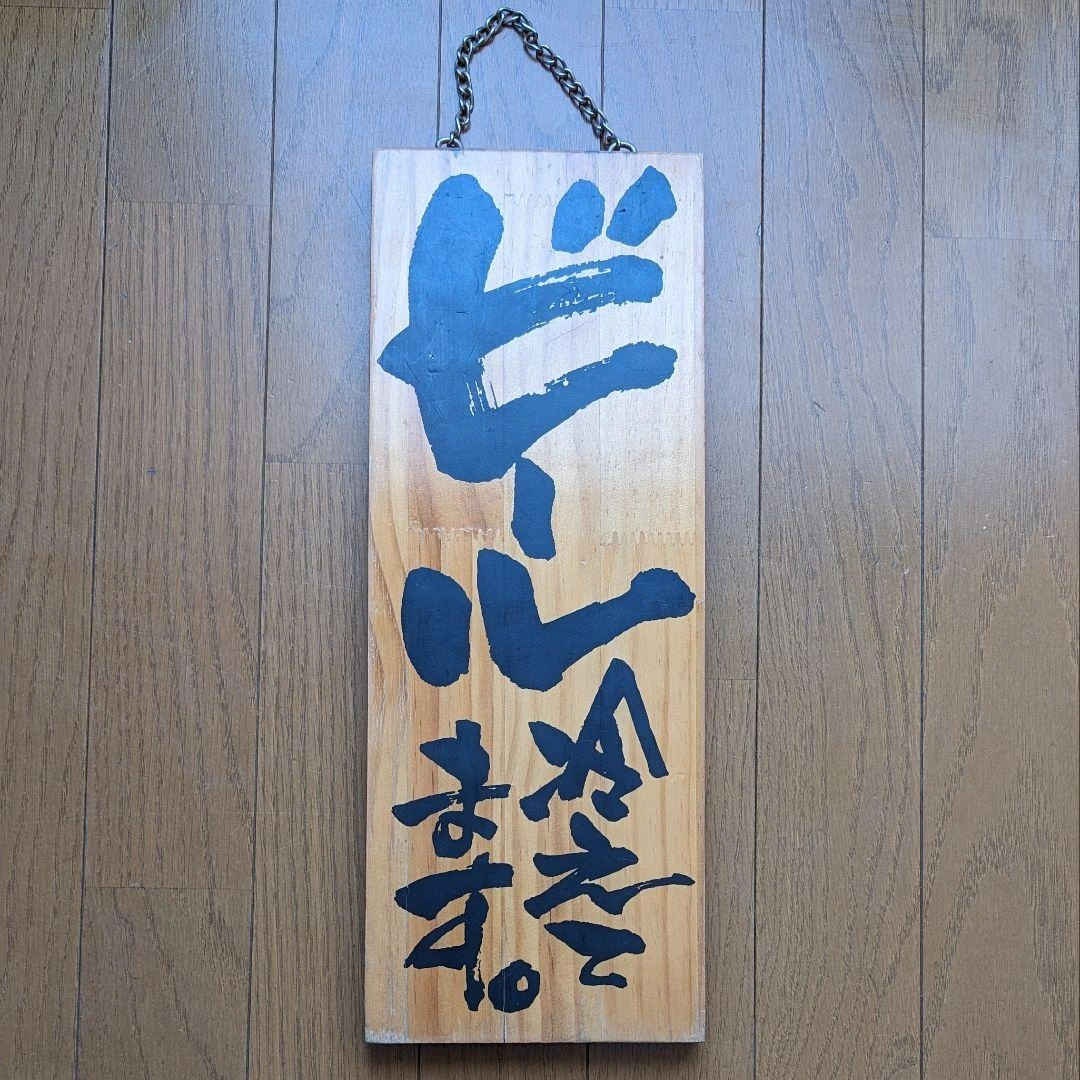 ビール
冷えて
ます。